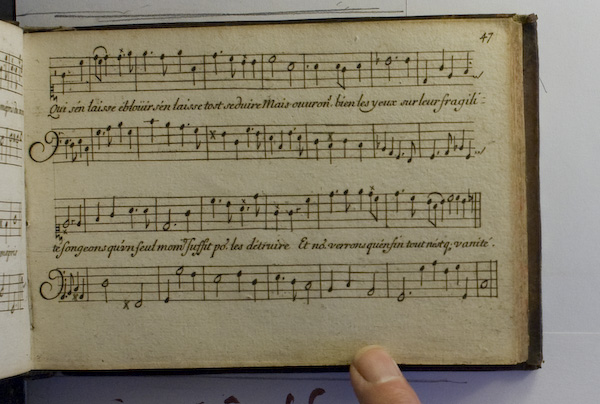 47
Qui s'en laisse eblouir s'en laisse tost seduire Mais ouuron. bien les yeux sur leur fragili-
te songeons qu'vn seul mom.t suffit po.r les détruire Et no.s verrons qu'enfin tout n'est q. vanité.